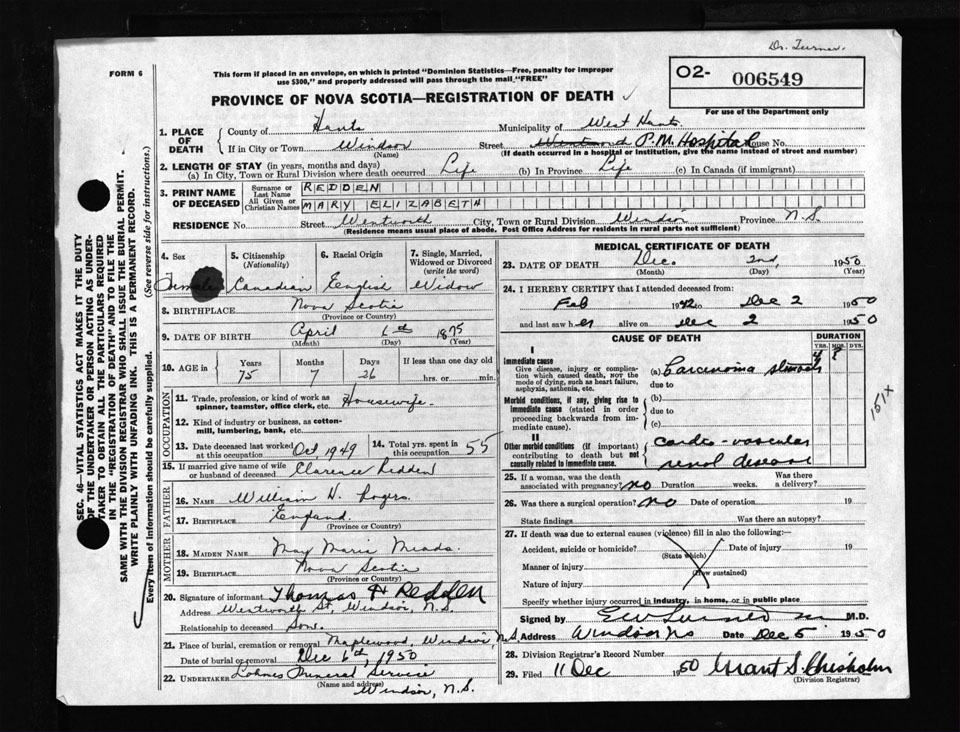 Dr. Turner.
FORM 6
This form if placed in an envelope, on which is printed "Dominion Statistics—Free, penalty for improper
use $300," and properly addressed will pass through the mail "FREE"
PROVINCE OF NOVA SCOTIA—REGISTRATION OF DEATH
O2- 006549
For use of the Department only
1. PLACE OF DEATH
County of Hants Municipality of West Hants
If in City or Town Windsor Street P.M. Hospital House No.
(Name) (If death occurred in a hospital or institution, give the name instead of street and number)
2. LENGTH OF STAY (in years, months and days)
(a) In City, Town or Rural Division where death occurred Life (b) In Province Life (c) In Canada (if immigrant)
3. PRINT NAME OF DECEASED
Surname or Last Name REDDEN
All Given or Christian Names MARY ELIZABETH
RESIDENCE No. Street Wentworth City, Town or Rural Division Windsor Province N.S.
(Residence means usual place of abode. Post Office Address for residents in rural parts not sufficient)
4. Sex Female
5. Citizenship (Nationality) Canadian
6. Racial Origin English
7. Single, Married, Widowed or Divorced (write the word) Widow
8. BIRTHPLACE Nova Scotia
(Province or Country)
9. DATE OF BIRTH April 6th 1875
(Month) (Day) (Year)
10. AGE in Years 75 Months 7 Days 26 If less than one day old hrs. or min.
OCCUPATION
11. Trade, profession, or kind of work as
spinner, teamster, office clerk, etc. Housewife.
12. Kind of industry or business, as cotton-
mill, lumbering, bank, etc.
13. Date deceased last worked at this occupation Oct 1949
14. Total yrs. spent in this occupation 55
15. If married give name of wife
or husband of deceased Clarence Redden
FATHER
16. NAME William H. Rogers
17. BIRTHPLACE England.
(Province or Country)
MOTHER
18. MAIDEN NAME May Maria Meads.
19. BIRTHPLACE Nova Scotia
(Province or Country)
20. Signature of informant Thomas H Redden
Address Wentworth St, Windsor, N.S.
Relationship to deceased Son.
21. Place of burial, cremation or removal Maplewood, Windsor, N.S.
Date of burial or removal Dec 6th, 1950
22. UNDERTAKER Lohnes Funeral Service
(Name and address)
Windsor, N.S.
MEDICAL CERTIFICATE OF DEATH
23. DATE OF DEATH Dec. 2nd, 1950
(Month) (Day) (Year)
24. I HEREBY CERTIFY that I attended deceased from:
Feb 1942 to Dec 2 1950
and last saw her alive on Dec 2 1950
CAUSE OF DEATH
DURATION
YRS. MOS. DYS.
I
Immediate cause
Give disease, injury or complica-
tion which caused death, NOT the
mode of dying, such as heart failure,
asphyxia, asthenia, etc.
(a) Carcinoma stomach
due to
Morbid conditions, if any, giving rise to
immediate cause (stated in order
proceeding backwards from im-
mediate cause).
(b)
due to
(c)
151X
II
Other morbid conditions (if important)
contributing to death but not
causally related to immediate cause.
cardio-vascular
renal disease
25. If a woman, was the death
associated with pregnancy? no Duration weeks. Was there a delivery?
26. Was there a surgical operation? no Date of operation 19
State findings Was there an autopsy?
27. If death was due to external causes (violence) fill in also the following:
Accident, suicide or homicide? Date of injury 19
(State which)
Manner of injury
(How sustained)
Nature of injury
Specify whether injury occurred in industry, in home, or in public place
Signed by M.D.
Address Windsor NS Date Dec 5 1950
28. Division Registrar's Record Number
29. Filed 11 Dec 1950 Grant S. Chisholm
(Division Registrar)
SEC. 46—VITAL STATISTICS ACT MAKES IT THE DUTY
OF THE UNDERTAKER OR PERSON ACTING AS UNDER-
TAKER TO OBTAIN ALL THE PARTICULARS REQUIRED
IN THE "REGISTRATION OF DEATH" AND TO FILE THE
SAME WITH THE DIVISION REGISTRAR WHO SHALL ISSUE THE BURIAL PERMIT.
WRITE PLAINLY WITH UNFADING INK. THIS IS A PERMANENT RECORD.
Every item of information should be carefully supplied. (See reverse side for instructions.)